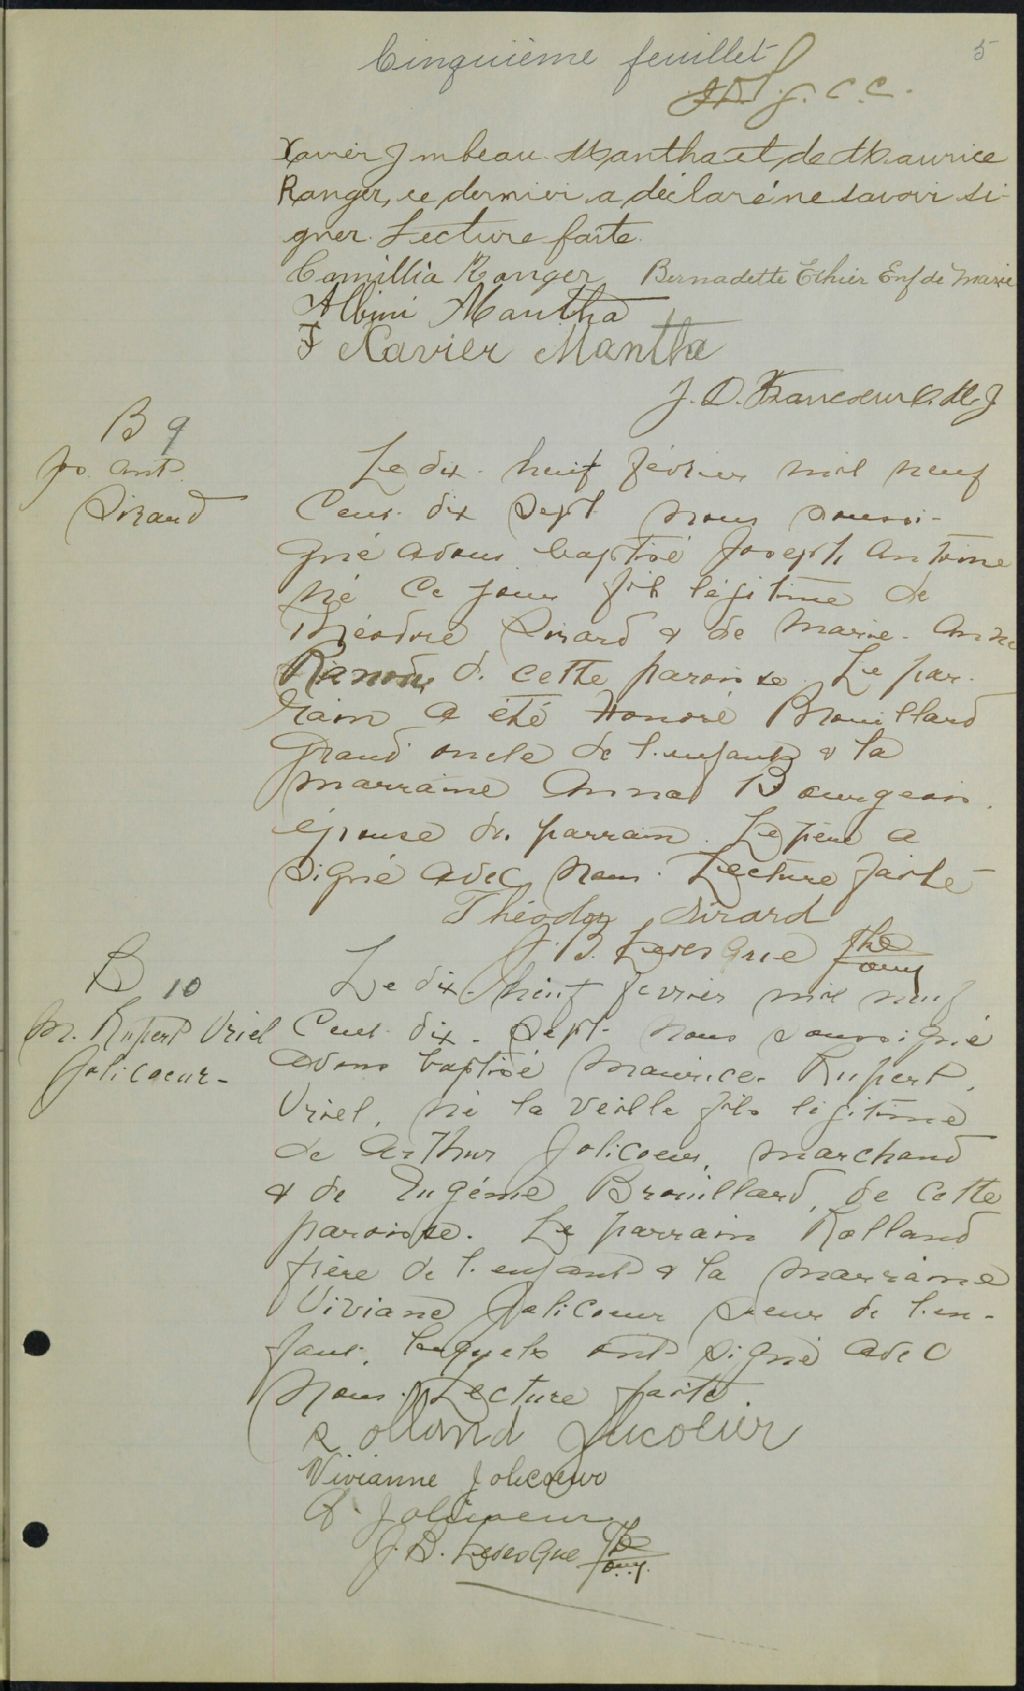 Cinquième feuillet 5
J. C. C.
Xavier Imbeau Mantha et de Maurice
Ranger, ce dernier a déclaré ne savoir si-
gner. Lecture faite.
Camillia Ranger Bernadette Ethier Enf de Marie
Albini Mantha
F Xavier Mantha
J. O. Francoeur
B 9
Jos. Ant.
Sirard
Le dix-neuf février mil neuf
Cent dix sept nous soussi-
gné avons baptisé Joseph Antoine
né ce jour fils légitime de
Théodore Sirard & de Marie-Anne
de cette paroisse. Le par-
rain a été Honoré Brouillard
grand oncle de l'enfant & la
marraine Anna Bourgeois
épouse du parrain. Le père a
signé avec nous. Lecture faite
Théodore Sirard
J. B. Levesque ptre
B 10
M. Rupert Uriel
Jolicoeur-
Le dix-neuf fevrier mil neuf
Cent dix-sept nous soussigné
avons baptisé Maurice-Rupert,
Uriel, né la veille fils légitime
de Arthur Jolicoeur, marchand
& de Eugénie Brouillard, de cette
paroisse. Le parrain Rolland
frère de l'enfant & la marraine
Viviane Jolicoeur soeur de l'en-
fant, lesquels ont signé avec
nous. Lecture faite
Rolland Jiicolieur
Vivianne Jolicoeur
A. Jolicoeur
J. B. Levesque ptre